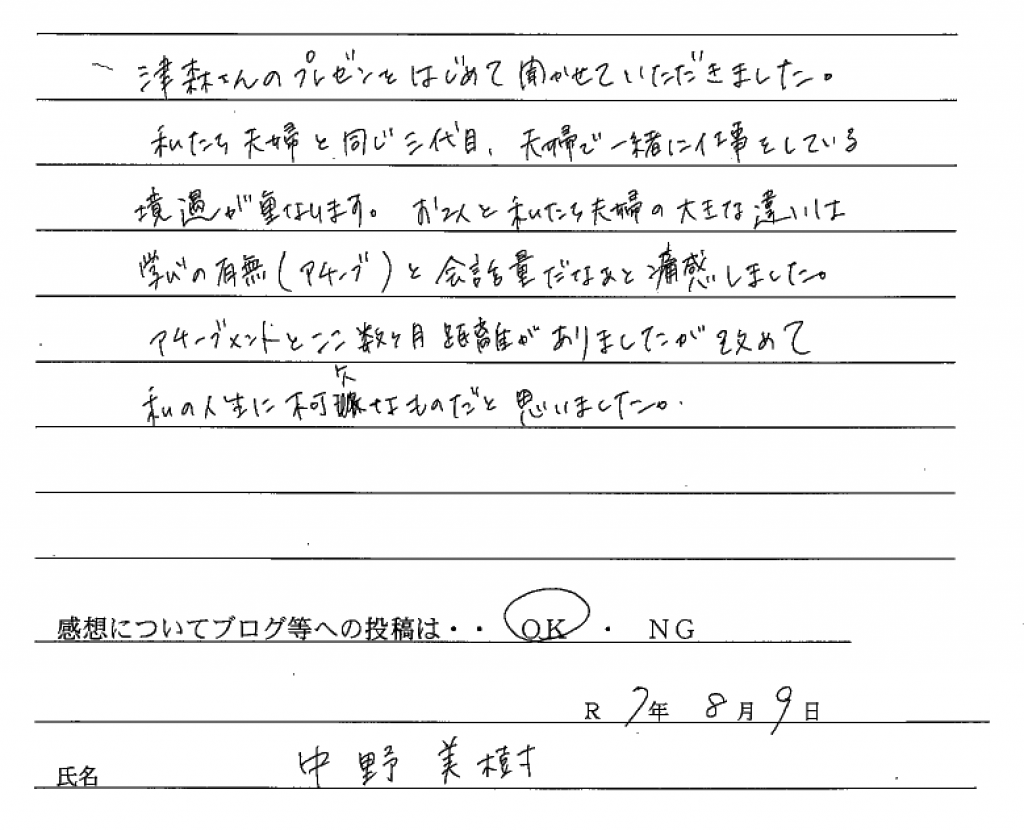 津森さんのプレゼンをはじめて聞かせていただきました。
私たち夫婦と同じ三代目、夫婦で一緒に仕事をしている
境遇が重なります。お2人と私たち夫婦の大きな違いは
学びの有無(アチーブ)と会話量だなあと痛感しました。
アチーブメントとここ数ヶ月距離がありましたが改めて
私の人生に不可欠なものだと思いました。
感想についてブログ等への投稿は・・ OK ・ NG
R 7年 8月 9日
氏名 中野 美樹